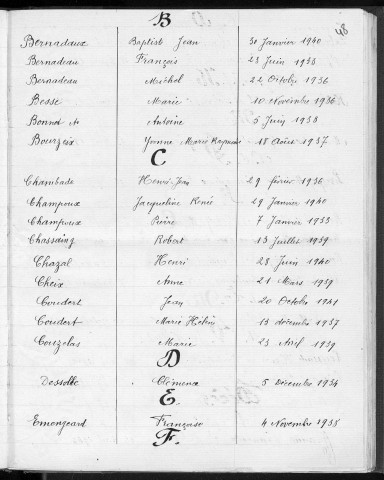 48
B
Bernadaux Baptist Jean 30 Janvier 1940
Bernadeau François 23 Juin 1938
Bernadeau Michel 22 Octobre 1936
Besse Marie 10 Novembre 1936
Bonnet Antoine 5 Juin 1938
Bourzeix Yvonne Marie Raymonde 18 Août 1937
C
Chambade Henri Jean 29 février 1936
Champoux Jacqueline Renée 29 Janvier 1940
Champoux Pierre 7 Janvier 1933
Chassaing Robert 13 Juillet 1939
Chazal Henri 28 Juin 1940
Cheix Anne 21 Mars 1939
Coudert Jean 20 Octobre 1941
Coudert Marie Hélèn 13 décembre 1937
Couzelas Marie 23 Avril 1939
D
Dessolle Clémence 5 Décembre 1934
E.
Emongeard Françoise 4 Novembre 1938
F.